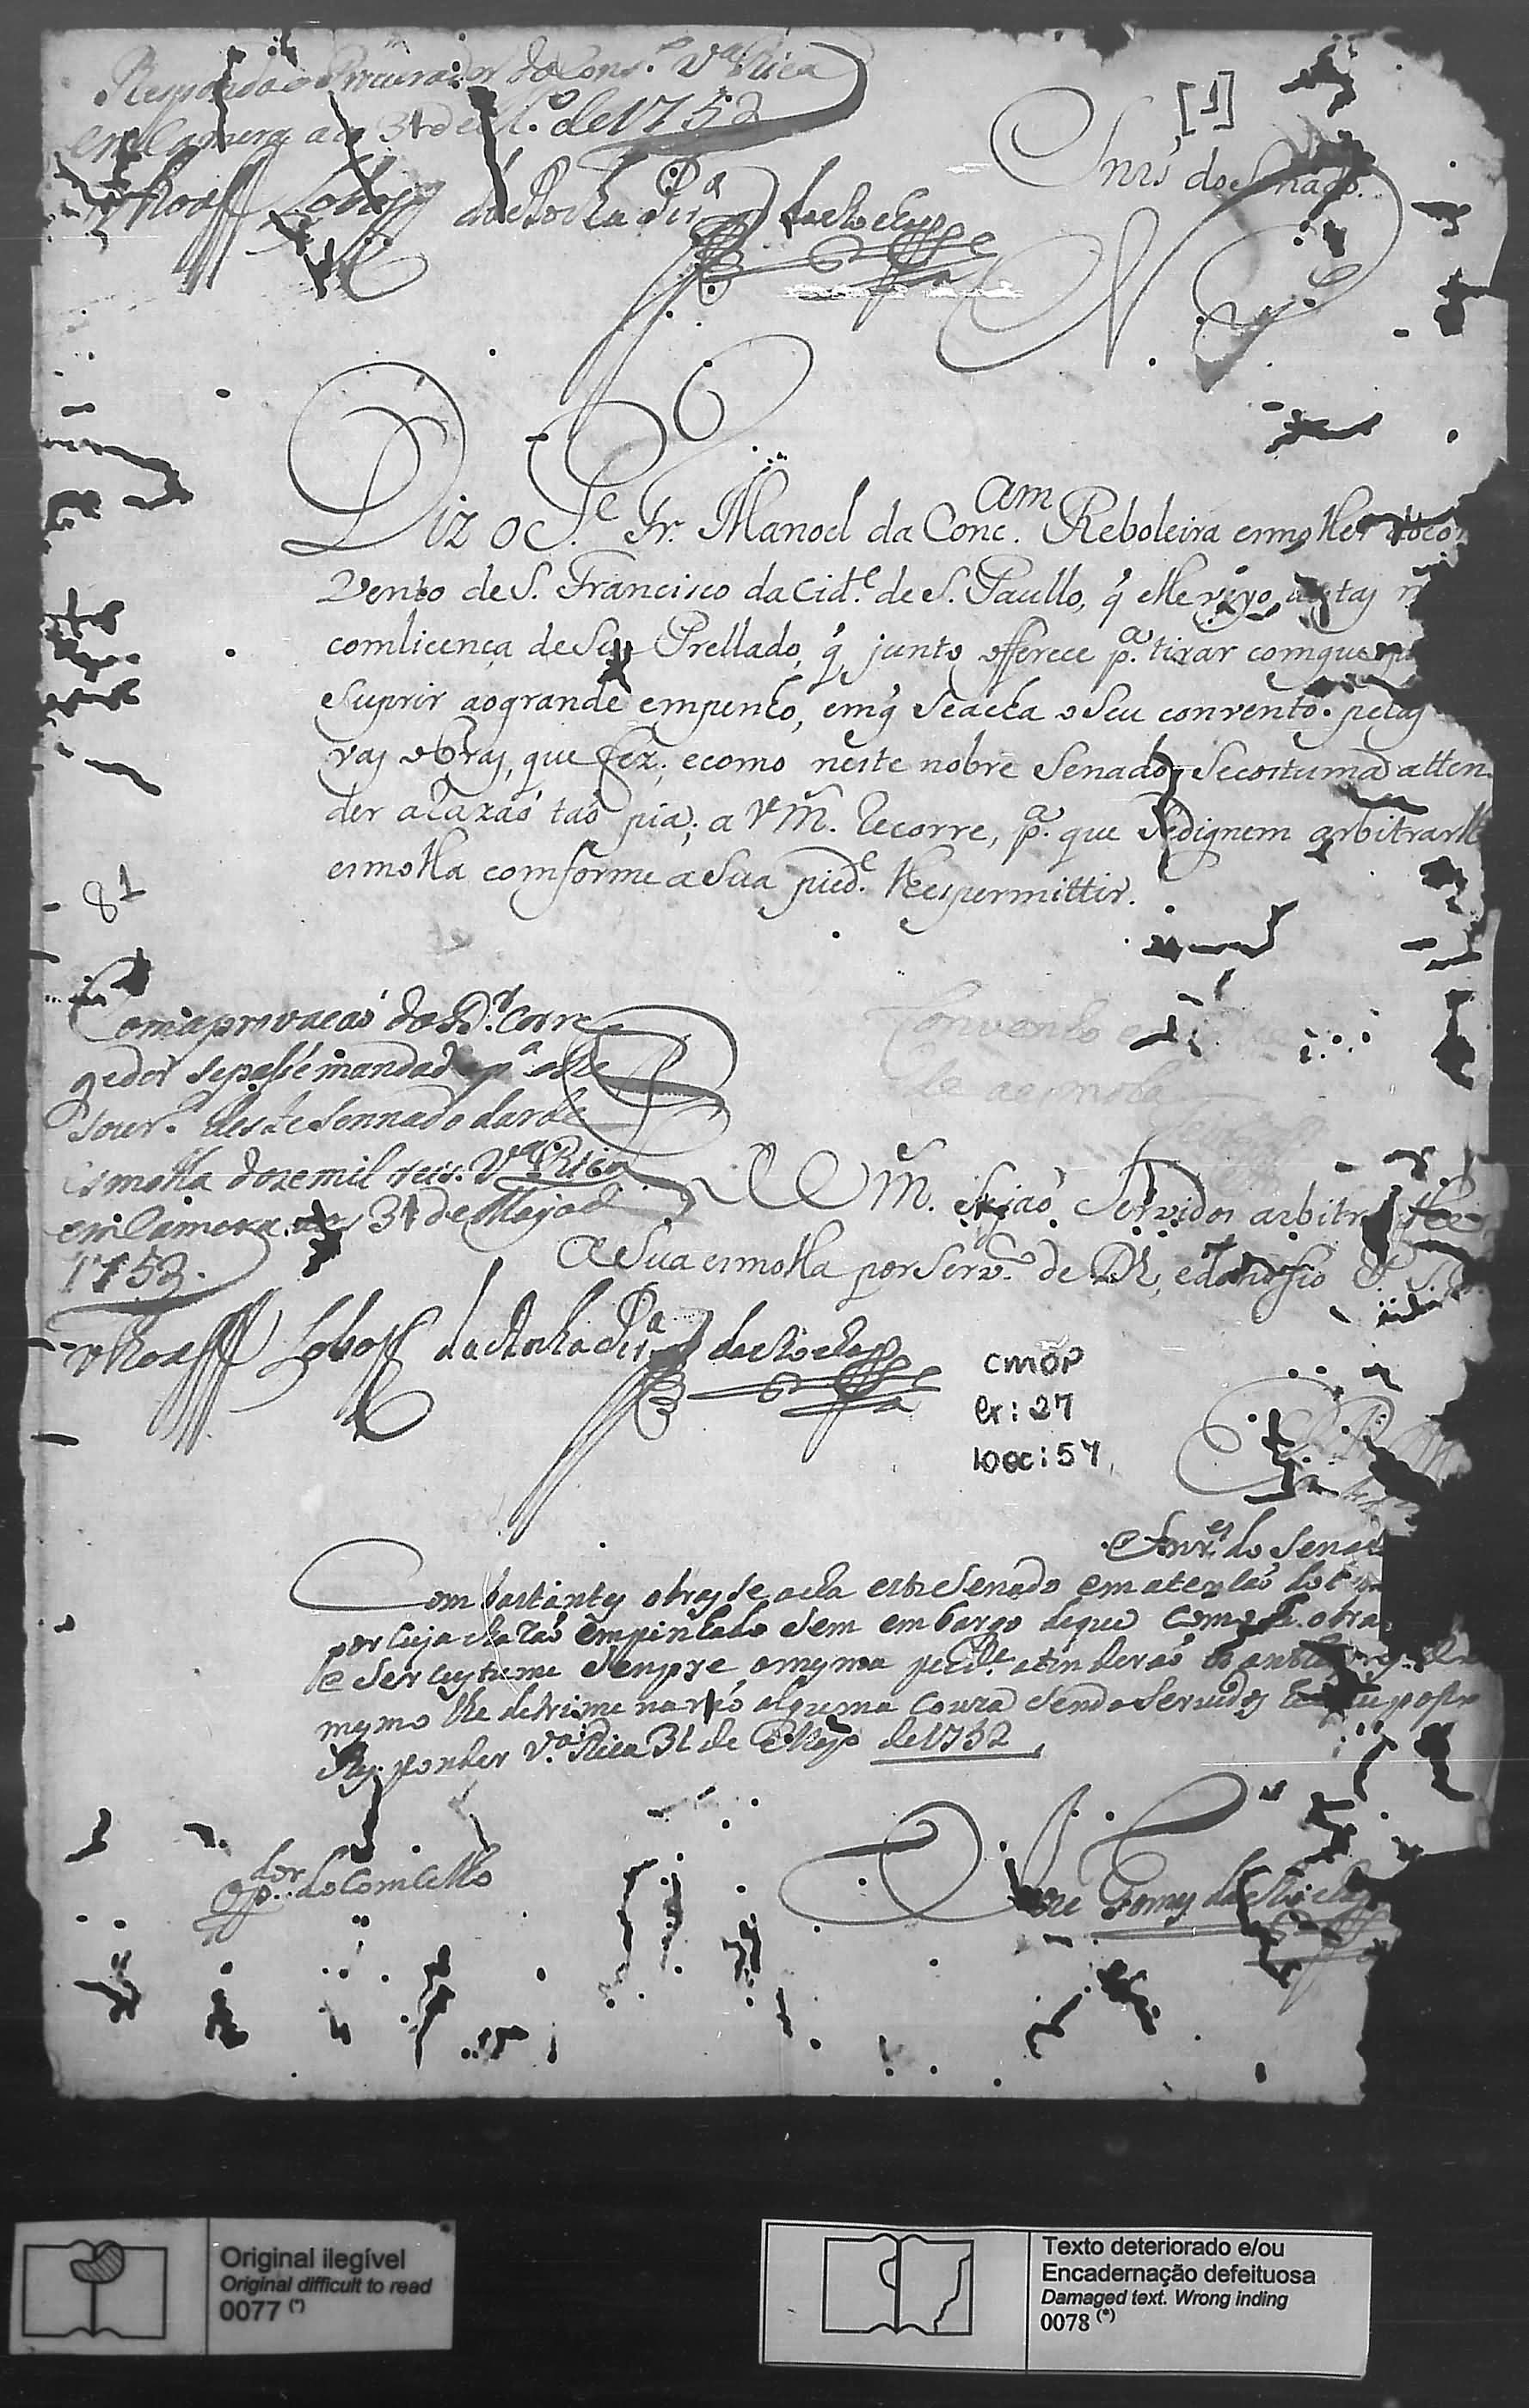 Responda o Procurador do Cons.º V.ª Rica
em Camera aos 31 de M.º de 1752
Lobo da Rocha Pir.ª da Rocha
[1]
Snrs do Senado
Diz o P.e Fr. Manoel da Conc.am Reboleira esmoller do Co
vento de S. Francisco da Cid.e de S. Paullo, q̃ elle veyo a estas
com licença de Seu Prellado, q̃ junto offerece p.a tirar com que
suprir ao grande empenho, em q̃ Se acha o Seu convento pelas
vas obras, que fez; e como neste nobre Senado Se costuma atten
der a razaõ taõ pia; a V M. Recorre, p.a que Se dignem arbitrarlhe
esmolla comforme a Sua pied.e lhes permittir.
81
Com aprovacaõ do D.r Corre
gedor se pase mandado p.a o The
sour.º deste Sennado dar de
Esmolla doze mil reis. V.ª Rica
em Camera aos 31 de Mayo de
1752.
P
A V M. Sejaõ Servidos arbitrar lhe
a Sua esmolla por Serv.º de D.s, e do nosso P. S.
Lobo da Rocha Pir.ª da Rocha
CMOP
Cx: 27
Doc: 57
E R M
Snr.es do Senado
Com bastantes obras se acha este Senado em atençaõ do
por cuja Razaõ empinhado sem embargo de que como he obra
e Ser custume sempre a mesma pied.e atinderaõ
mesmo lhe detriminaraõ alguma Couza sendo Servidos he o que posso
Responder V.ª Rica 31 de Mayo de 1752
O p.dor do Concelho
Joze Gomes da Rocha
Original ilegível
Original difficult to read
0077 (*)
Texto deteriorado e/ou
Encadernação defeituosa
Damaged text. Wrong inding
0078 (*)